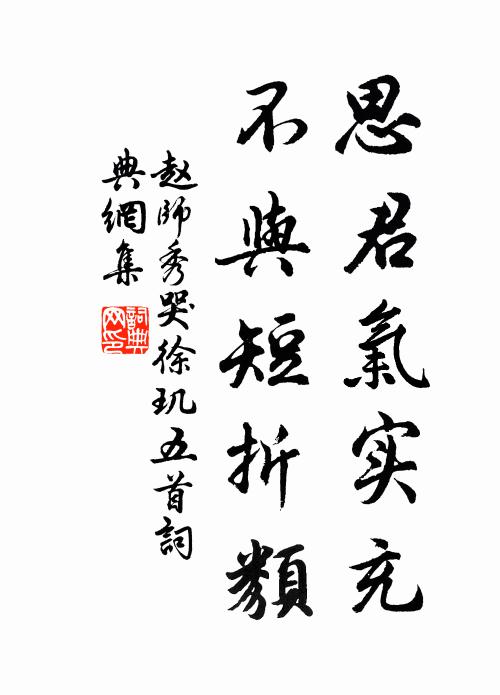 思君氣实充
不與短折類
赵師秀哭徐玑五首詞
典網集
詞典网印